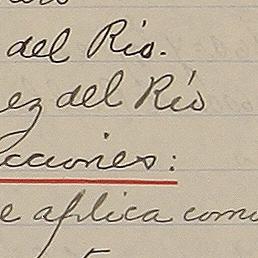 del Río.
ez del Río
cciones:
e aplica como